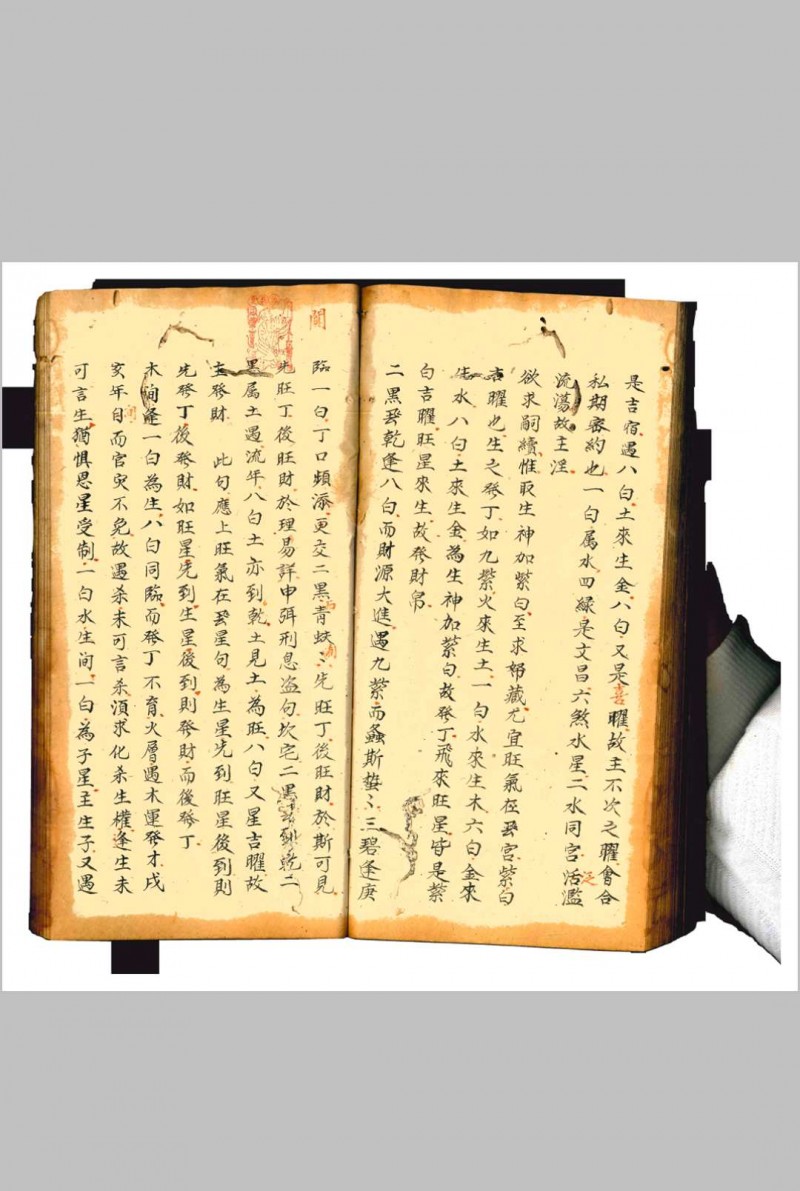 是吉宿遇八白土來生金八白又是喜曜故主不次之曜會合
私期密約也一白属水四緑是文昌六煞水星二水同宮活濫
流蕩故主淫
欲求嗣續惟取生神加紫白至求帑藏尤宜旺氣在宮紫白
吉曜也生之發丁如九紫火來生土一白水來生木六白金來
生水八白土來生金為生神加紫白故發丁飛來旺星皆是紫
白吉曜旺星來生故發財帛
二黑乾逢八白而財源大進遇九紫而螽斯蟄〻三碧逢庚
臨一白丁口頻添更交二黑青蚨〻先旺丁後旺財於斯可見
先旺丁後旺財於理易詳申弭刑息盗句坎宅二黑到乾二
黑属土遇流年八白土亦到乾土見土為旺八白又星吉曜故
主發財 此句應上旺氣在星句為生星先到旺星後到則
先發丁後發財如旺星先到生星後到則發財而後發丁
木間逢一白為生八白同臨而發丁不育火層遇木運發才戌
亥年而官灾不免故遇杀未可言杀須求化杀生權逢生未
可言生猶惧恩星受制一白水生间一白為子星主生子又遇
闗